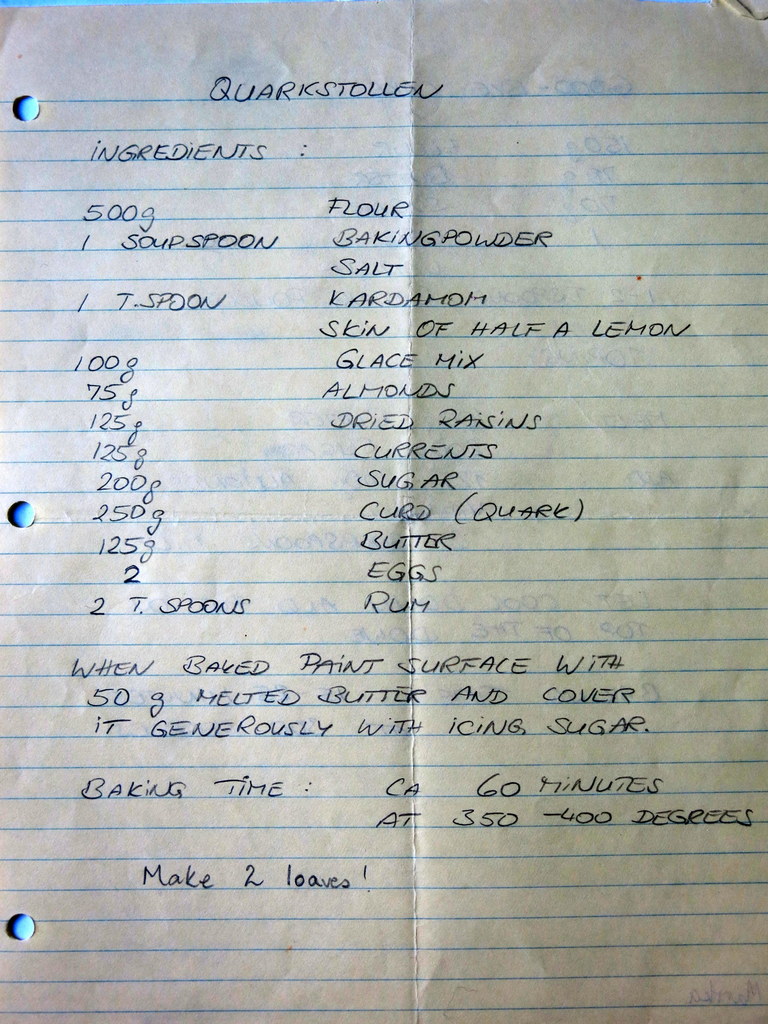 QUARKSTOLLEN
INGREDIENTS :
500g FLOUR
1 SOUPSPOON BAKINGPOWDER
SALT
1 T.SPOON KARDAMOM
SKIN OF HALF A LEMON
100g GLACE MIX
75g ALMONDS
125g DRIED RAISINS
125g CURRENTS
200g SUGAR
250g CURD (QUARK)
125g BUTTER
2 EGGS
2 T. SPOONS RUM
WHEN BAKED PAINT SURFACE WITH
50 g MELTED BUTTER AND COVER
IT GENEROUSLY WITH ICING SUGAR.
BAKING TIME : CA 60 MINUTES
AT 350 -400 DEGREES
Make 2 loaves!